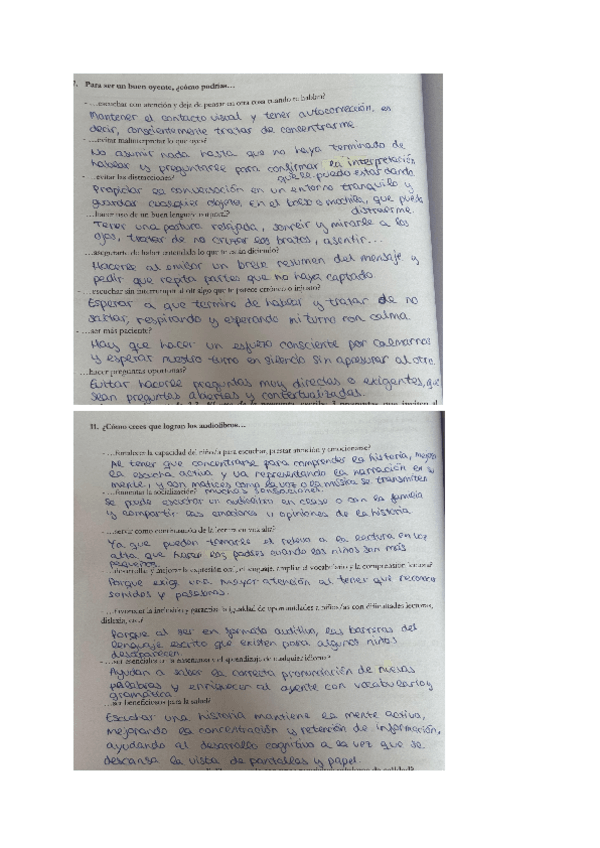 7. Para ser un buen oyente, ¿cómo podrías...
- ...escuchar con atención y dejar de pensar en otra cosa cuando te hablan?
Mantener el contacto visual y tener autocorrección, es
decir, conscientemente tratar de concentrarme.
- ...evitar malinterpretar lo que oyes?
No asumir nada hasta que no haya terminado de
hablar y preguntarle para confirmar la interpretación
que le puedo estar dando.
- ...evitar las distracciones?
Propiciar la conversación en un entorno tranquilo y
guardar cualquier objeto, en el bolso o mochila, que pueda
distraerme.
...hacer uso de un buen lenguaje corporal?
Tener una postura relajada, sonreír y mirarle a los
ojos, tratar de no cruzar los brazos, asentir...
...asegurarte de haber entendido lo que te están diciendo?
Hacerle al emisor un breve resumen del mensaje y
pedir que repita partes que no haya captado.
- ...escuchar sin interrumpir al oír algo que te parece erróneo o injusto?
Esperar a que termine de hablar y tratar de no
saltar, respirando y esperando mi turno con calma.
- ...ser más paciente?
Hay que hacer un esfuerzo consciente por calmarnos
y esperar nuestro turno en silencio sin apresurar al otro.
...hacer preguntas oportunas?
Evitar hacerle preguntas muy directas o exigentes, que
sean preguntas abiertas y contextualizadas.
11. ¿Cómo crees que logran los audiolibros...
- ...fortalecer la capacidad del oyente para escuchar, prestar atención y emocionarse?
Al tener que concentrarse para comprender la historia, mejora
la escucha activa y va representando la narración en su
mente, y con matices como la voz o la música se transmiten
muchas sensaciones.
- ...fomentar la socialización?
Se puede escuchar un audiolibro en clase o con la familia
y compartir las emociones u opiniones de la historia
- ...servir como continuación de la lectura en voz alta?
Ya que pueden tomarle el relevo a la lectura en voz
alta que hacen los padres cuando los niños son más
pequeños.
...desarrollar y mejorar la expresión oral, el lenguaje, ampliar el vocabulario y la comprensión lectora?
Porque exige una mayor atención al tener que reconocer
sonidos y palabras.
- ...favorecer la inclusión y garantizar la igualdad de oportunidades a niños/as con dificultades lectoras,
dislexia, etc.?
Porque al ser en formato auditivo, las barreras del
lenguaje escrito que existen para algunos niños
desaparecen.
...ser esenciales en la enseñanza y el aprendizaje de cualquier idioma?
Ayudan a saber la correcta pronunciación de nuevas
palabras y enriquecen al oyente con vocabulario y
gramática.
...ser beneficiosos para la salud?
Escuchar una historia mantiene la mente activa,
mejorando la concentración y retención de información,
ayudando al desarrollo cognitivo a la vez que se
descansa la vista de pantallas y papel.